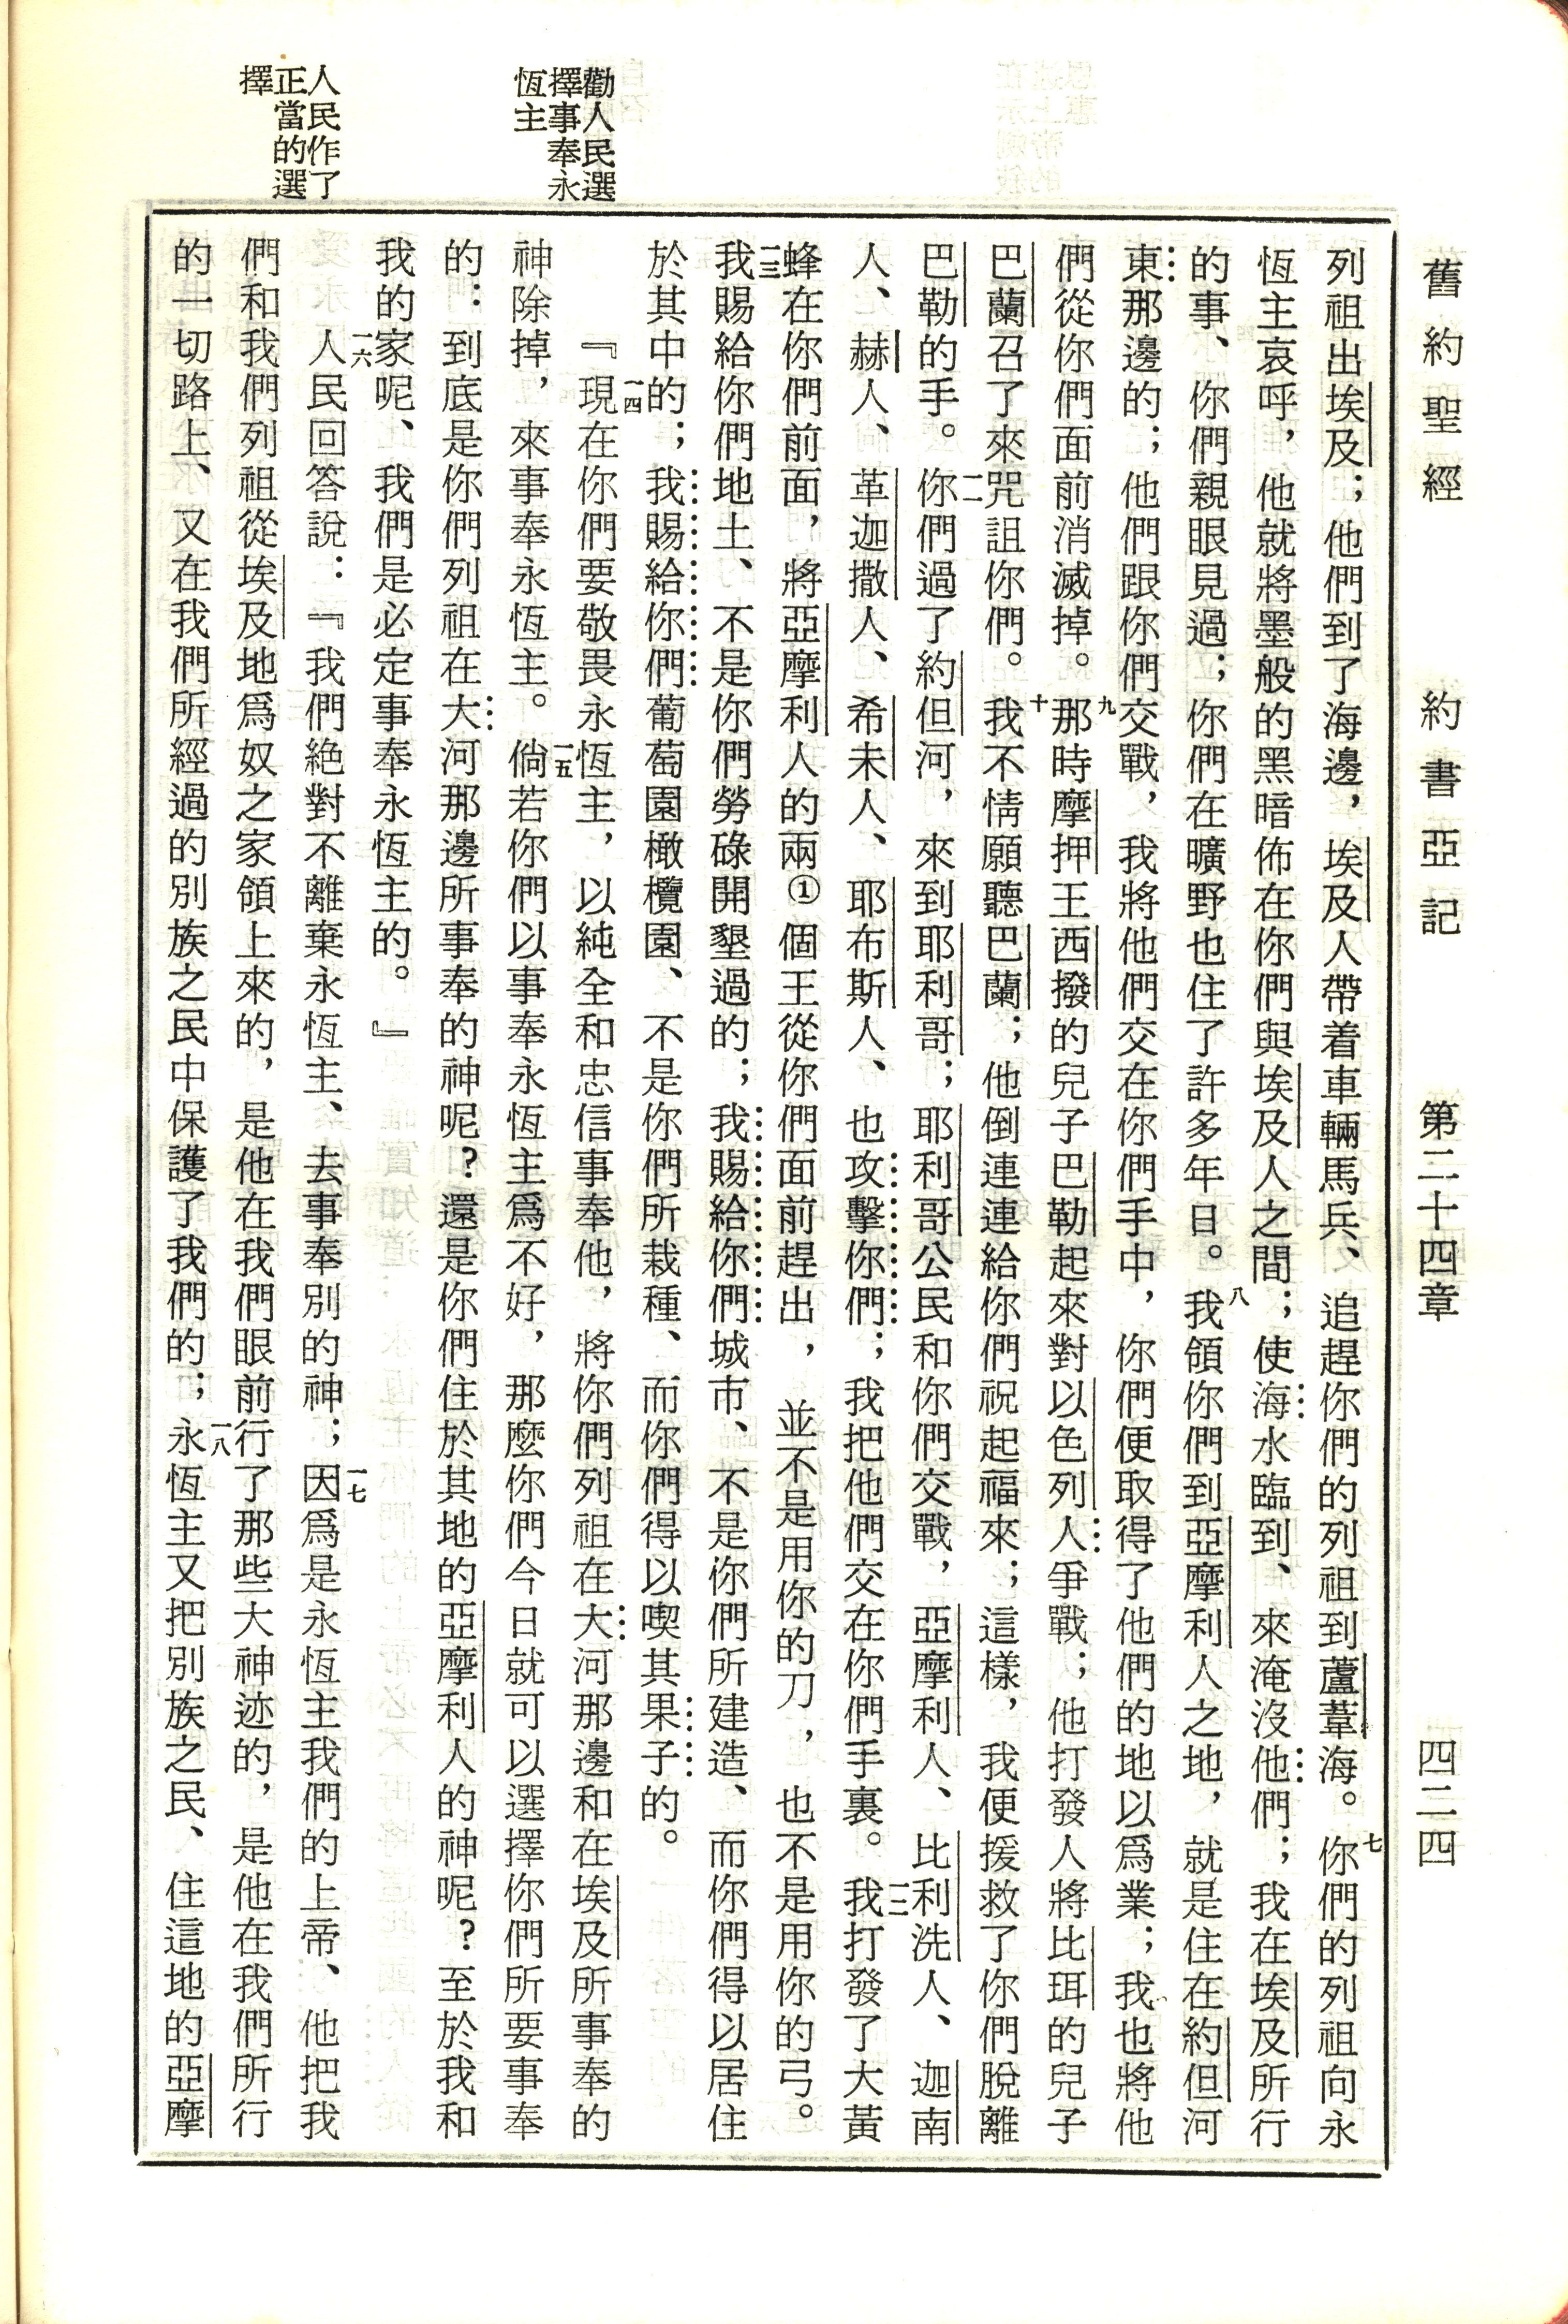 舊約聖經　約書亞記　第二十四章　四二四
列祖出埃及；他們到了海邊，埃及人帶着車輛馬兵、追趕你們的列祖到蘆葦海。七你們的列祖向永
恆主哀呼，他就將墨般的黑暗佈在你們與埃及人之間；使海水臨到、來淹沒他們；我在埃及所行
的事、你們親眼見過；你們在曠野也住了許多年日。八我領你們到亞摩利人之地，就是住在約但河
東那邊的；他們跟你們交戰，我將他們交在你們手中，你們便取得了他們的地以爲業；我也將他
們從你們面前消滅掉。九那時摩押王西撥的兒子巴勒起來對以色列人爭戰；他打發人將比珥的兒子
巴蘭召了來咒詛你們。十我不情願聽巴蘭；他倒連連給你們祝起福來；這樣，我便援救了你們脫離
巴勒的手。一一你們過了約但河，來到耶利哥；耶利哥公民和你們交戰，亞摩利人、比利洗人、迦南
人、赫人、革迦撒人、希未人、耶布斯人、也攻擊你們；我把他們交在你們手裏。一二我打發了大黃
蜂在你們前面，將亞摩利人的兩①個王從你們面前趕出，並不是用你的刀，也不是用你的弓。
一三我賜給你們地土、不是你們勞碌開墾過的；我賜給你們城市、不是你們所建造、而你們得以居住
於其中的；我賜給你們葡萄園橄欖園、不是你們所栽種、而你們得以喫其果子的。
勸人民選
擇事奉永
恆主
『一四現在你們要敬畏永恆主，以純全和忠信事奉他，將你們列祖在大河那邊和在埃及所事奉的
神除掉，來事奉永恆主。一五倘若你們以事奉永恆主爲不好，那麼你們今日就可以選擇你們所要事奉
的：到底是你們列祖在大河那邊所事奉的神呢？還是你們住於其地的亞摩利人的神呢？至於我和
我的家呢、我們是必定事奉永恆主的。』
人民作了
正當的選
擇
一六人民回答說：『我們絕對不離棄永恆主、去事奉別的神；一七因爲是永恆主我們的上帝、他把我
們和我們列祖從埃及地爲奴之家領上來的，是他在我們眼前行了那些大神迹的，是他在我們所行
的一切路上、又在我們所經過的別族之民中保護了我們的；一八永恆主又把別族之民、住這地的亞摩